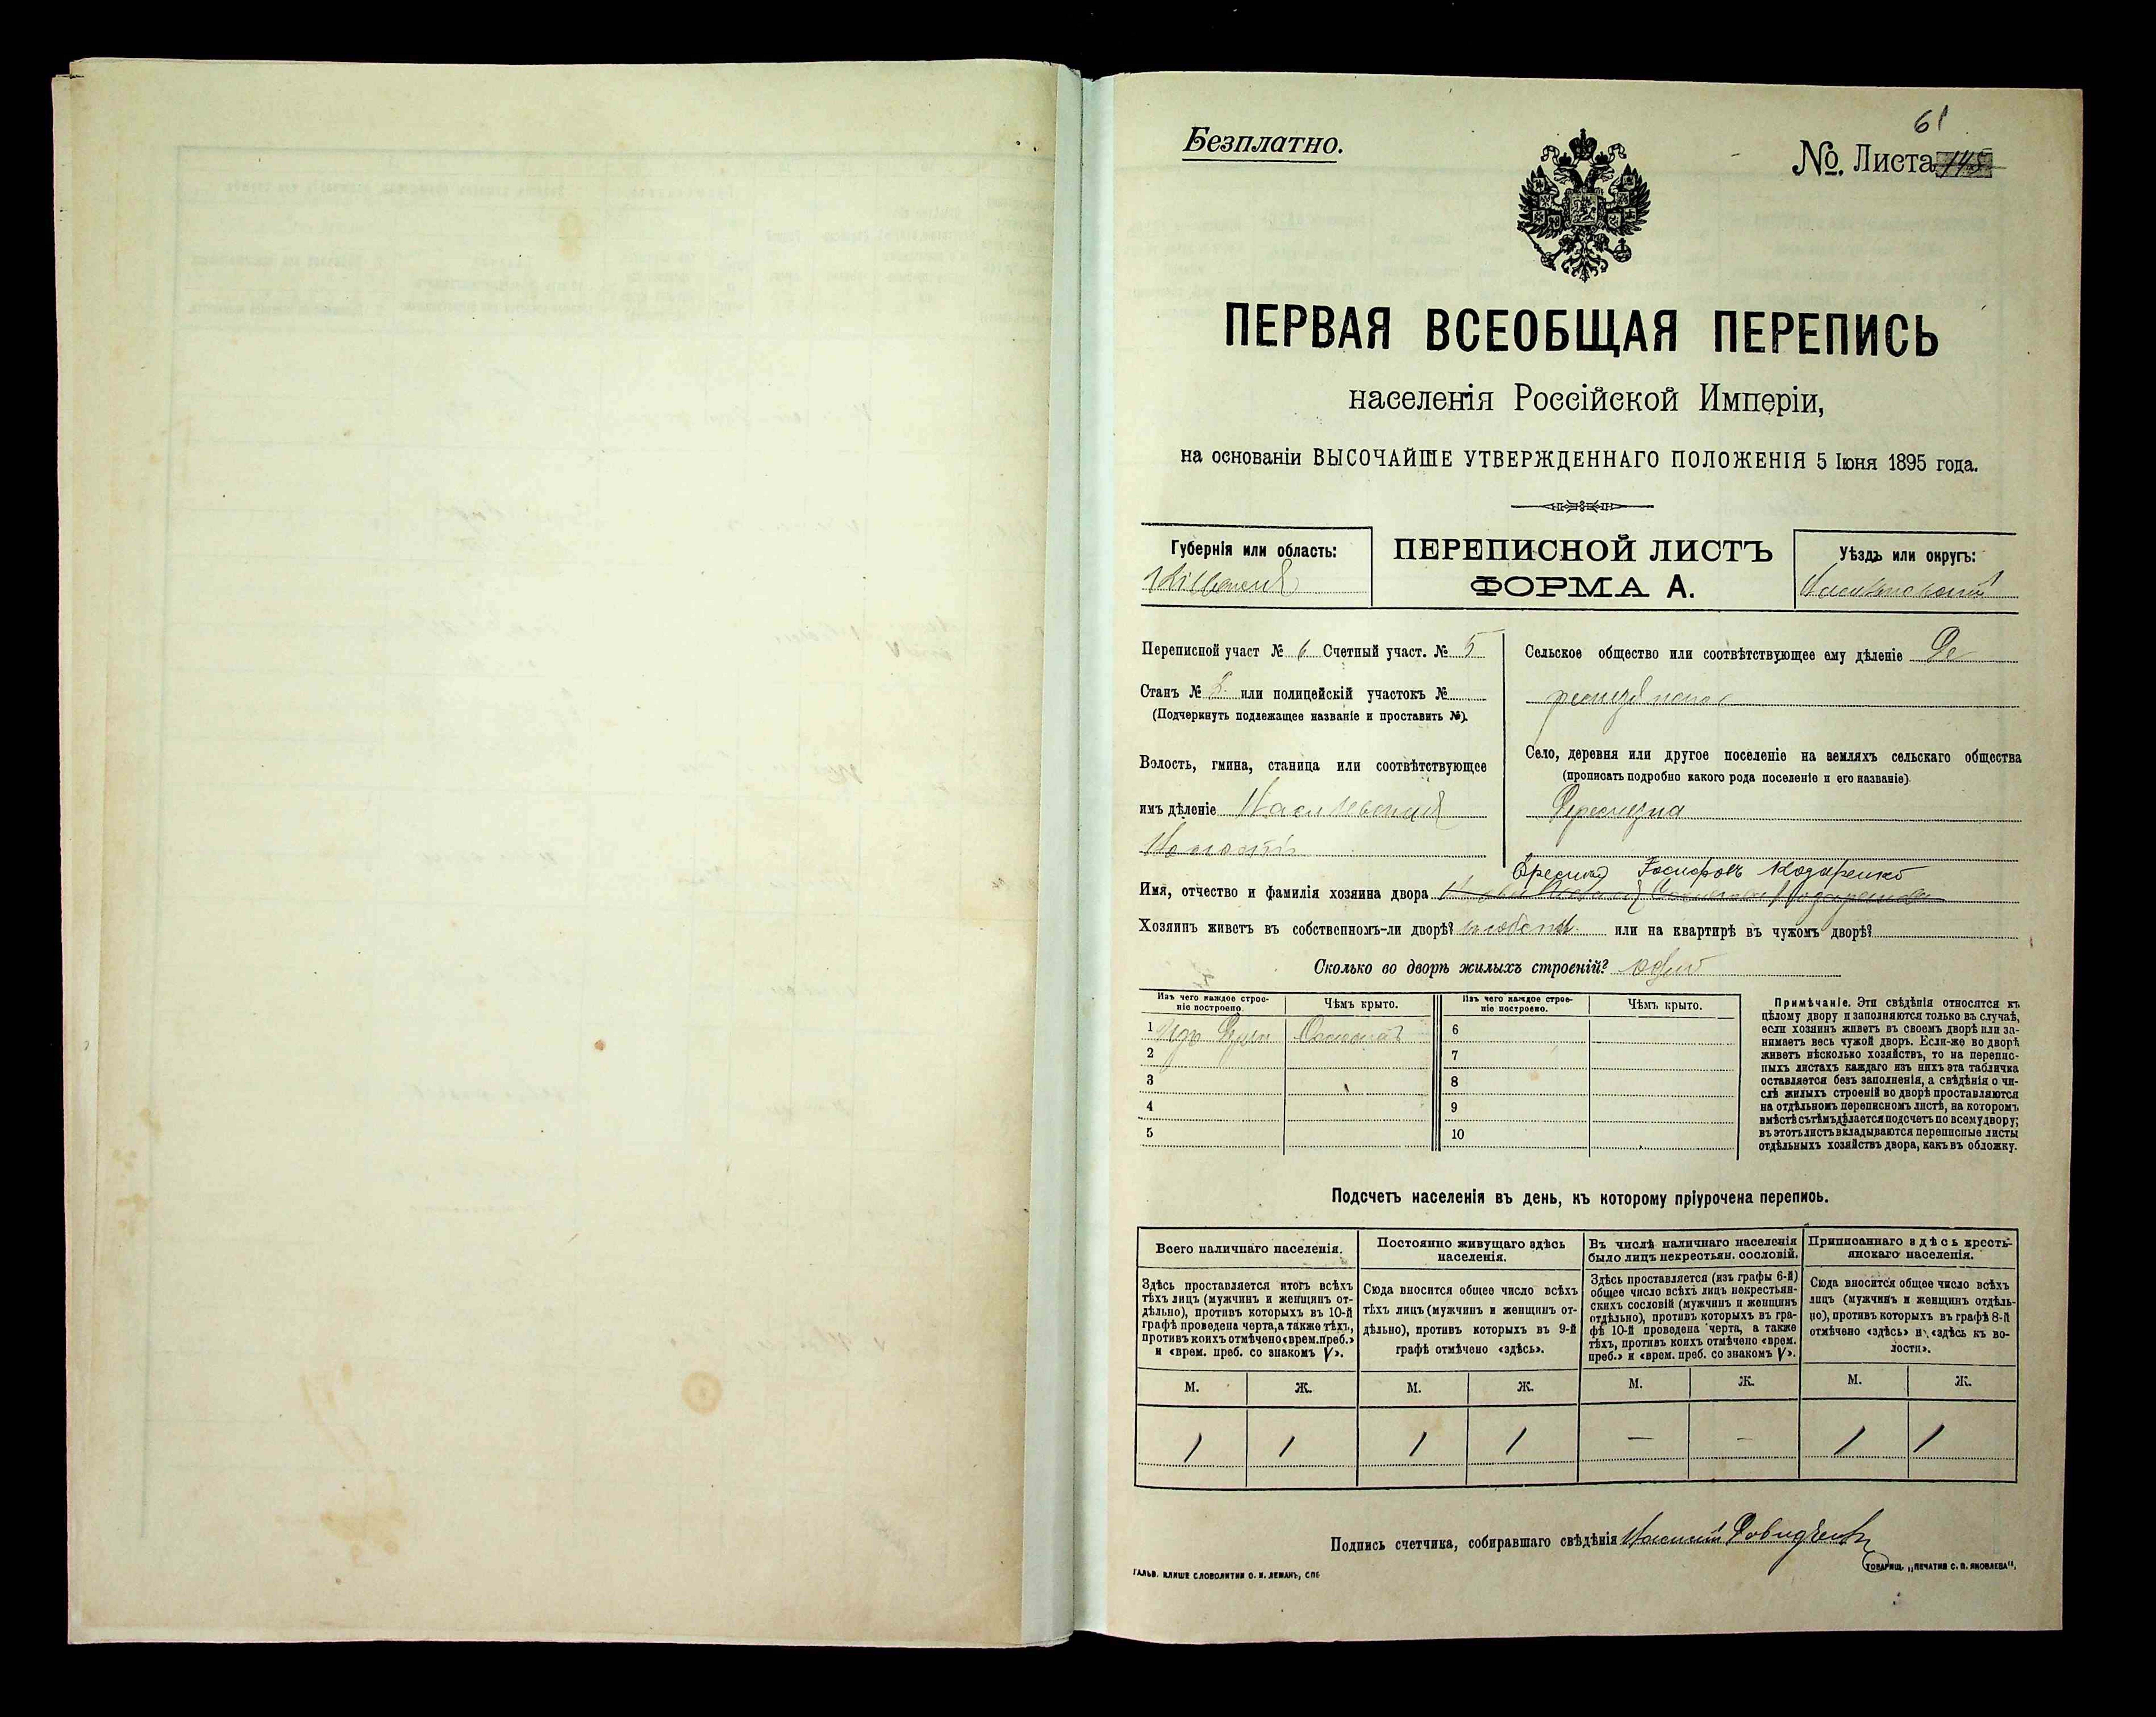 61
Безплатно.
№. Листа 145
ПЕРВАЯ ВСЕОБЩАЯ ПЕРЕПИСЬ
населенія Россійской Имперіи,
на основаніи ВЫСОЧАЙШЕ УТВЕРЖДЕННАГО ПОЛОЖЕНІЯ 5 Іюня 1895 года.
Губернія или область:
Кіевская
ПЕРЕПИСНОЙ ЛИСТЪ
ФОРМА А.
Уѣздъ или округъ:
Васильковскій
Переписной участ № 6 Счетный участ. № 5
Станъ № или полицейскій участокъ №
(Подчеркнуть подлежащее названіе и проставить №).
Волость, гмина, станица или соотвѣтствующее
имъ дѣленіе
Сельское общество или соотвѣтствующее ему дѣленіе
Село, деревня или другое поселеніе на земляхъ сельскаго общества
(прописать подробно какого рода поселеніе и его названіе)
Имя, отчество и фамилія хозяина двора
Хозяинъ живетъ въ собственномъ-ли дворѣ? или на квартирѣ въ чужомъ дворѣ?
Сколько во дворѣ жилыхъ строеній? одно
Изъ чего каждое строе-
ніе построено.
Чѣмъ крыто.
Изъ чего каждое строе-
ніе построено.
Чѣмъ крыто.
1 Изъ Соломой 6
2 7
3 8
4 9
5 10
Примѣчаніе. Эти свѣдѣнія относятся къ
цѣлому двору и заполняются только въ случаѣ,
если хозяинъ живетъ въ своемъ дворѣ или за-
нимаетъ весь чужой дворъ. Если-же во дворѣ
живетъ нѣсколько хозяйствъ, то на перепис-
ныхъ листахъ каждаго изъ нихъ эта табличка
оставляется безъ заполненія, а свѣдѣнія о чи-
слѣ жилыхъ строеній во дворѣ проставляются
на отдѣльномъ переписномъ листѣ, на которомъ
вмѣстѣ съ тѣмъ дѣлается подсчетъ по всему двору;
въ этотъ листъ вкладываются переписные листы
отдѣльныхъ хозяйствъ двора, какъ въ обложку.
Подсчетъ населенія въ день, къ которому пріурочена перепись.
Всего наличнаго населенія.
Здѣсь проставляется итогъ всѣхъ
тѣхъ лицъ (мужчинъ и женщинъ от-
дѣльно), противъ которыхъ въ 10-й
графѣ проведена черта, а также тѣхъ,
противъ коихъ отмѣчено «врем. преб.»
и «врем. преб. со знакомъ V».
Постоянно живущаго здѣсь
населенія.
Сюда вносится общее число всѣхъ
тѣхъ лицъ (мужчинъ и женщинъ от-
дѣльно), противъ которыхъ въ 9-й
графѣ отмѣчено «здѣсь».
Въ числѣ наличнаго населенія
было лицъ некрестьян. сословій.
Здѣсь проставляется (изъ графы 6-й)
общее число всѣхъ лицъ некрестьян-
скихъ сословій (мужчинъ и женщинъ
отдѣльно), противъ которыхъ въ гра-
фѣ 10-й проведена черта, а также
тѣхъ, противъ коихъ отмѣчено «врем.
преб.» и «врем. преб. со знакомъ V».
Приписаннаго здѣсь кресть-
янскаго населенія.
Сюда вносится общее число всѣхъ
лицъ (мужчинъ и женщинъ отдѣль-
но), противъ которыхъ въ графѣ 8-й
отмѣчено «здѣсь» и «здѣсь къ во-
лости».
М. Ж. М. Ж. М. Ж. М. Ж.
1 1 1 1 — — 1 1
Подпись счетчика, собиравшаго свѣдѣнія
ГАЛЬВ. КЛИШЕ СЛОВОЛИТНИ О. И. ЛЕМАНЪ, СПБ
ТОВАРИЩ. „ПЕЧАТНЯ С. П. ЯКОВЛЕВА".